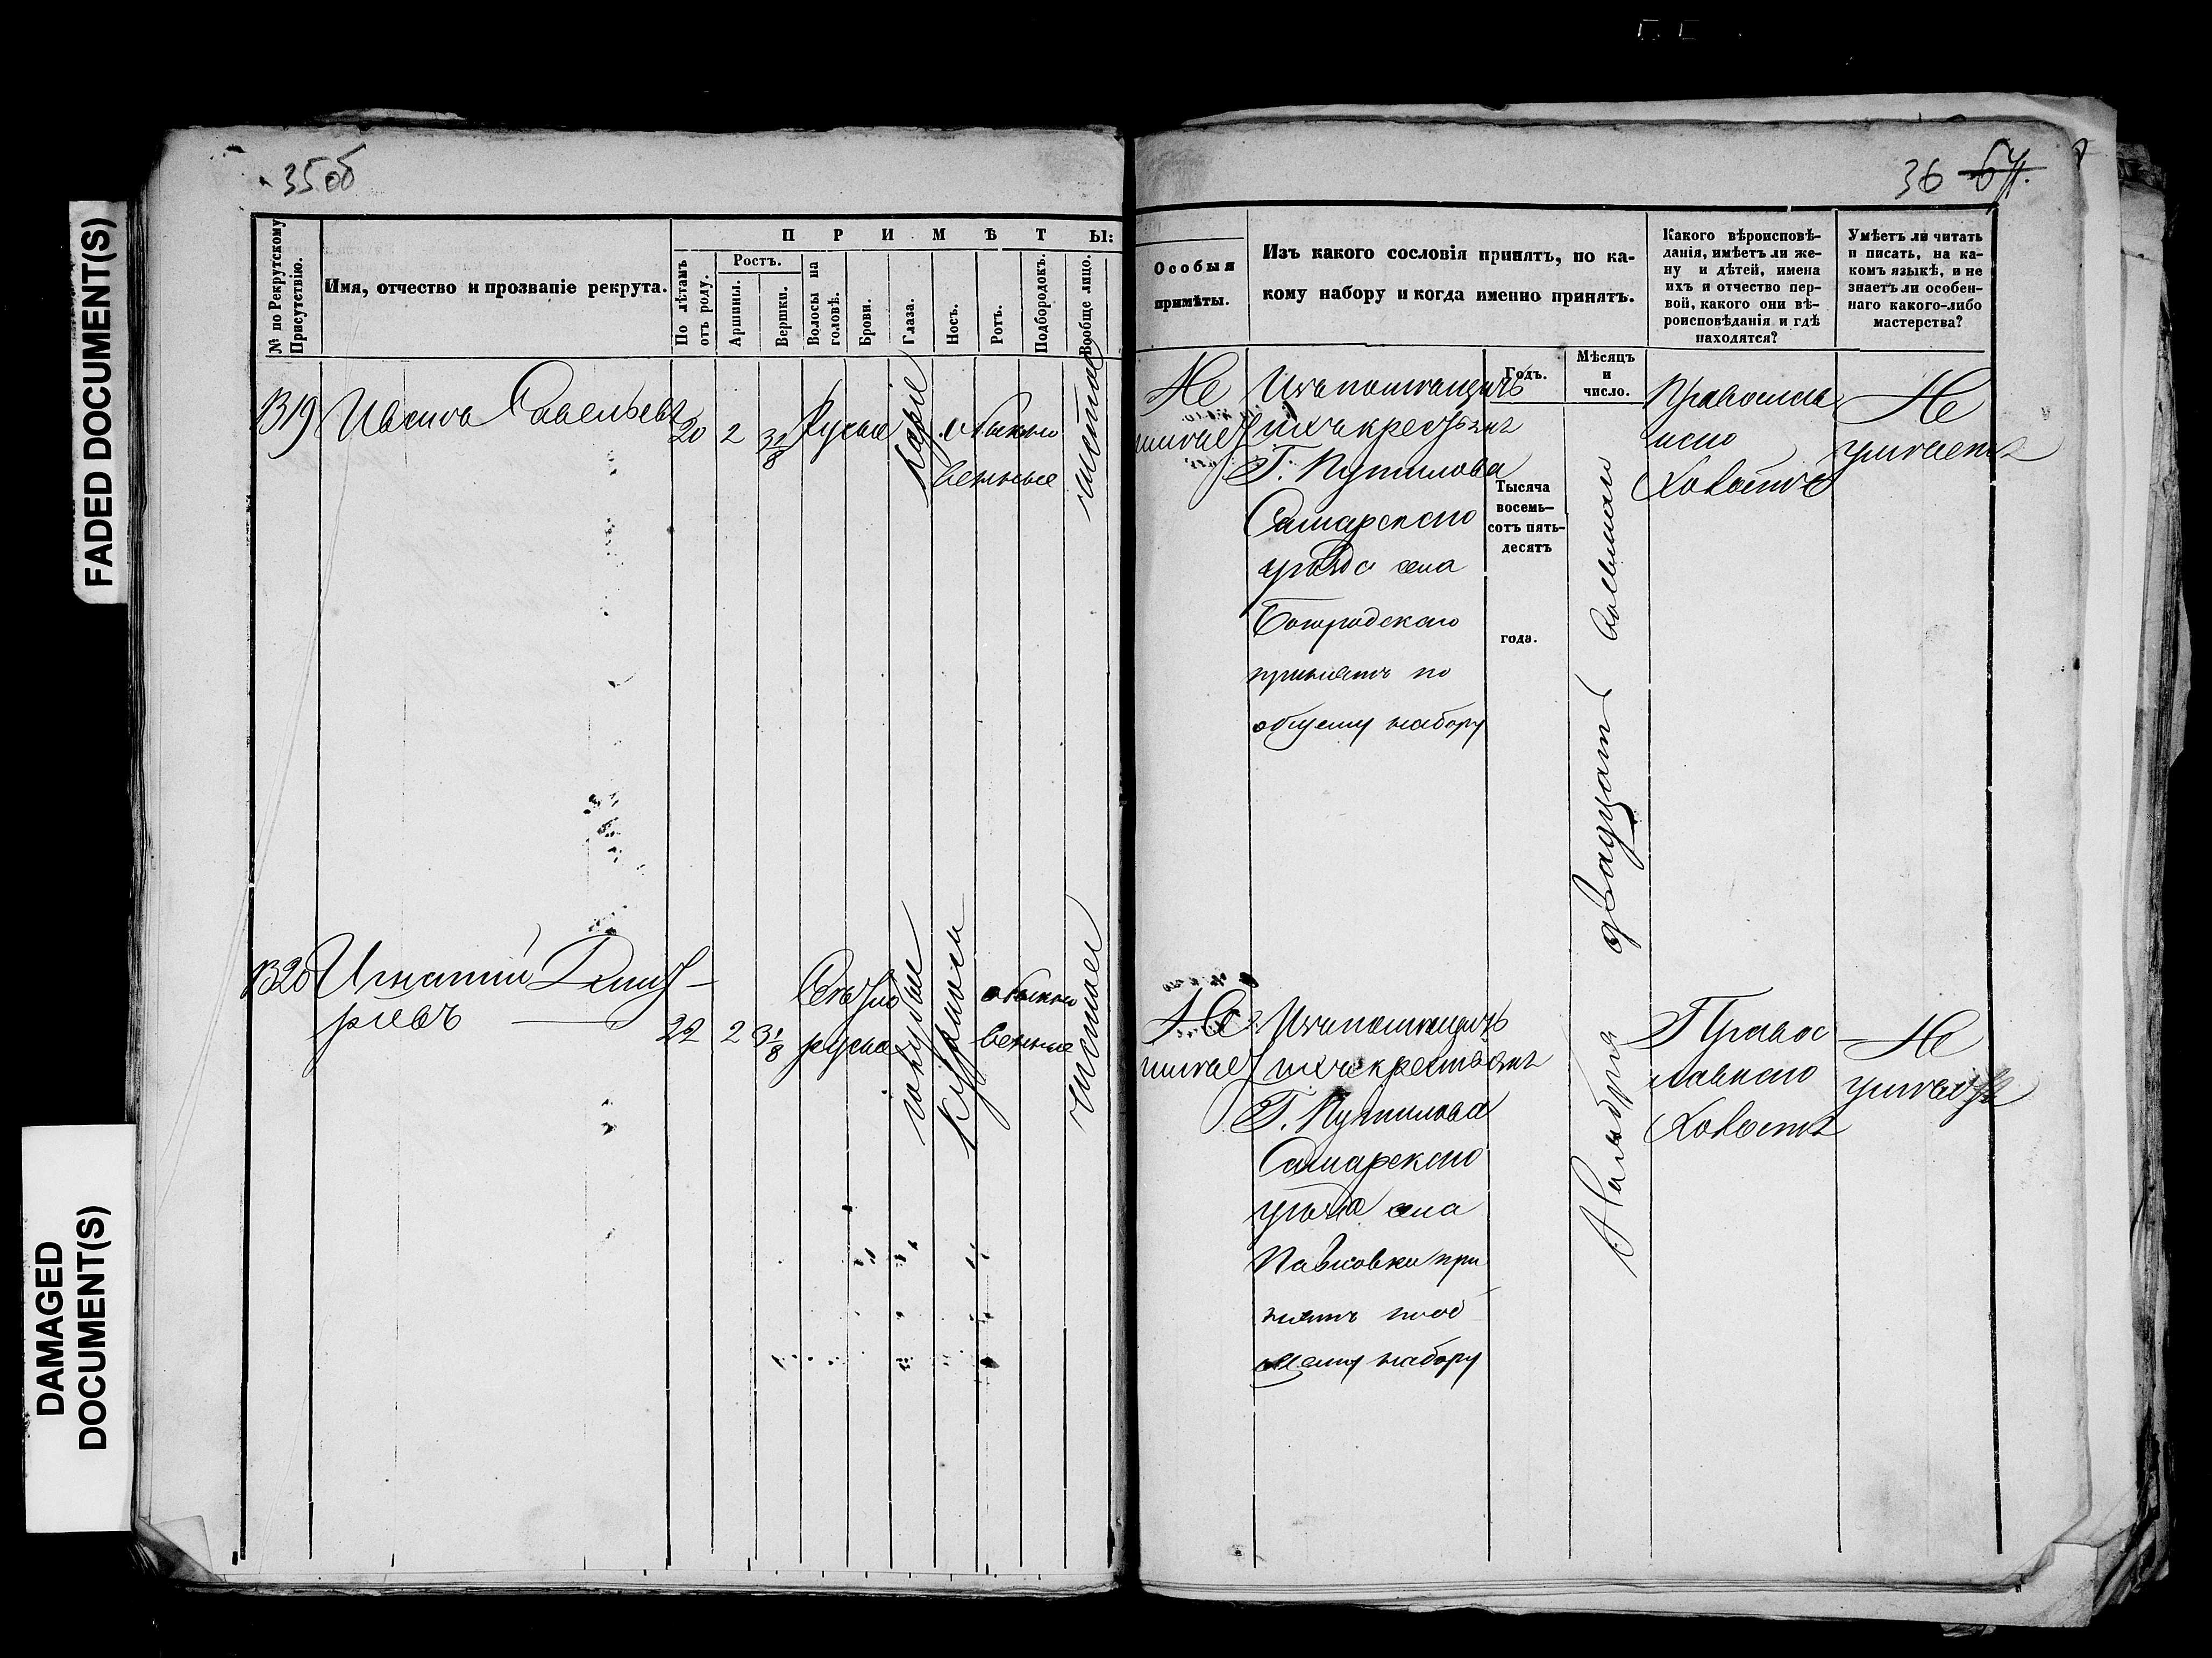 FADED DOCUMENT(S)
DAMAGED
DOCUMENT(S)
35об
№ по Рекрутскому
Присутствію.
Имя, отчество и прозваніе рекрута.
ПРИМѢТЫ:
По лѣтамъ
отъ роду.
Ростъ.
Аршины.
Вершки.
Волосы на
головѣ.
Брови.
Глаза.
Носъ.
Ротъ.
Подбородокъ.
Вообще лицо.
319 Иванъ Савельевъ 20 2 3 2/8 Русыя Каріе обыкно
венные чистое
320 Игнатій Дмит-
ріевъ 22 2 3 1/8 Свѣтло
русыя голубые обыкно
венные чистое
36 64.
Особыя
примѣты.
Изъ какого сословія принятъ, по ка-
кому набору и когда именно принятъ.
Годъ.
Мѣсяцъ
и
число.
Какого вѣроисповѣ-
данія, имѣетъ ли же-
ну и дѣтей, имена
ихъ и отчество пер-
вой, какого они вѣ-
роисповѣданія и гдѣ
находятся?
Умѣетъ ли читать
и писать, на ка-
комъ языкѣ, и не
знаетъ ли особен-
наго какого-либо
мастерства?
Не
имѣет
Изъ помѣщичь
ихъ крестьянъ
Г. Путилова
Самарскаго
уѣзда села
Богородскаго
принятъ по
общему набору
Тысяча
восемь-
сотъ пять-
десятъ
года.
Ноября двадцат восьмаго
Православ
наго
Холостъ
Не
умѣетъ
Не
имѣет
Изъ помѣщичь
ихъ крестьянъ
Г. Путилова
Самарскаго
уѣзда села
Павловки при
нятъ по об
щему набору
Правос
лавнаго
Холостъ
Не
умѣетъ